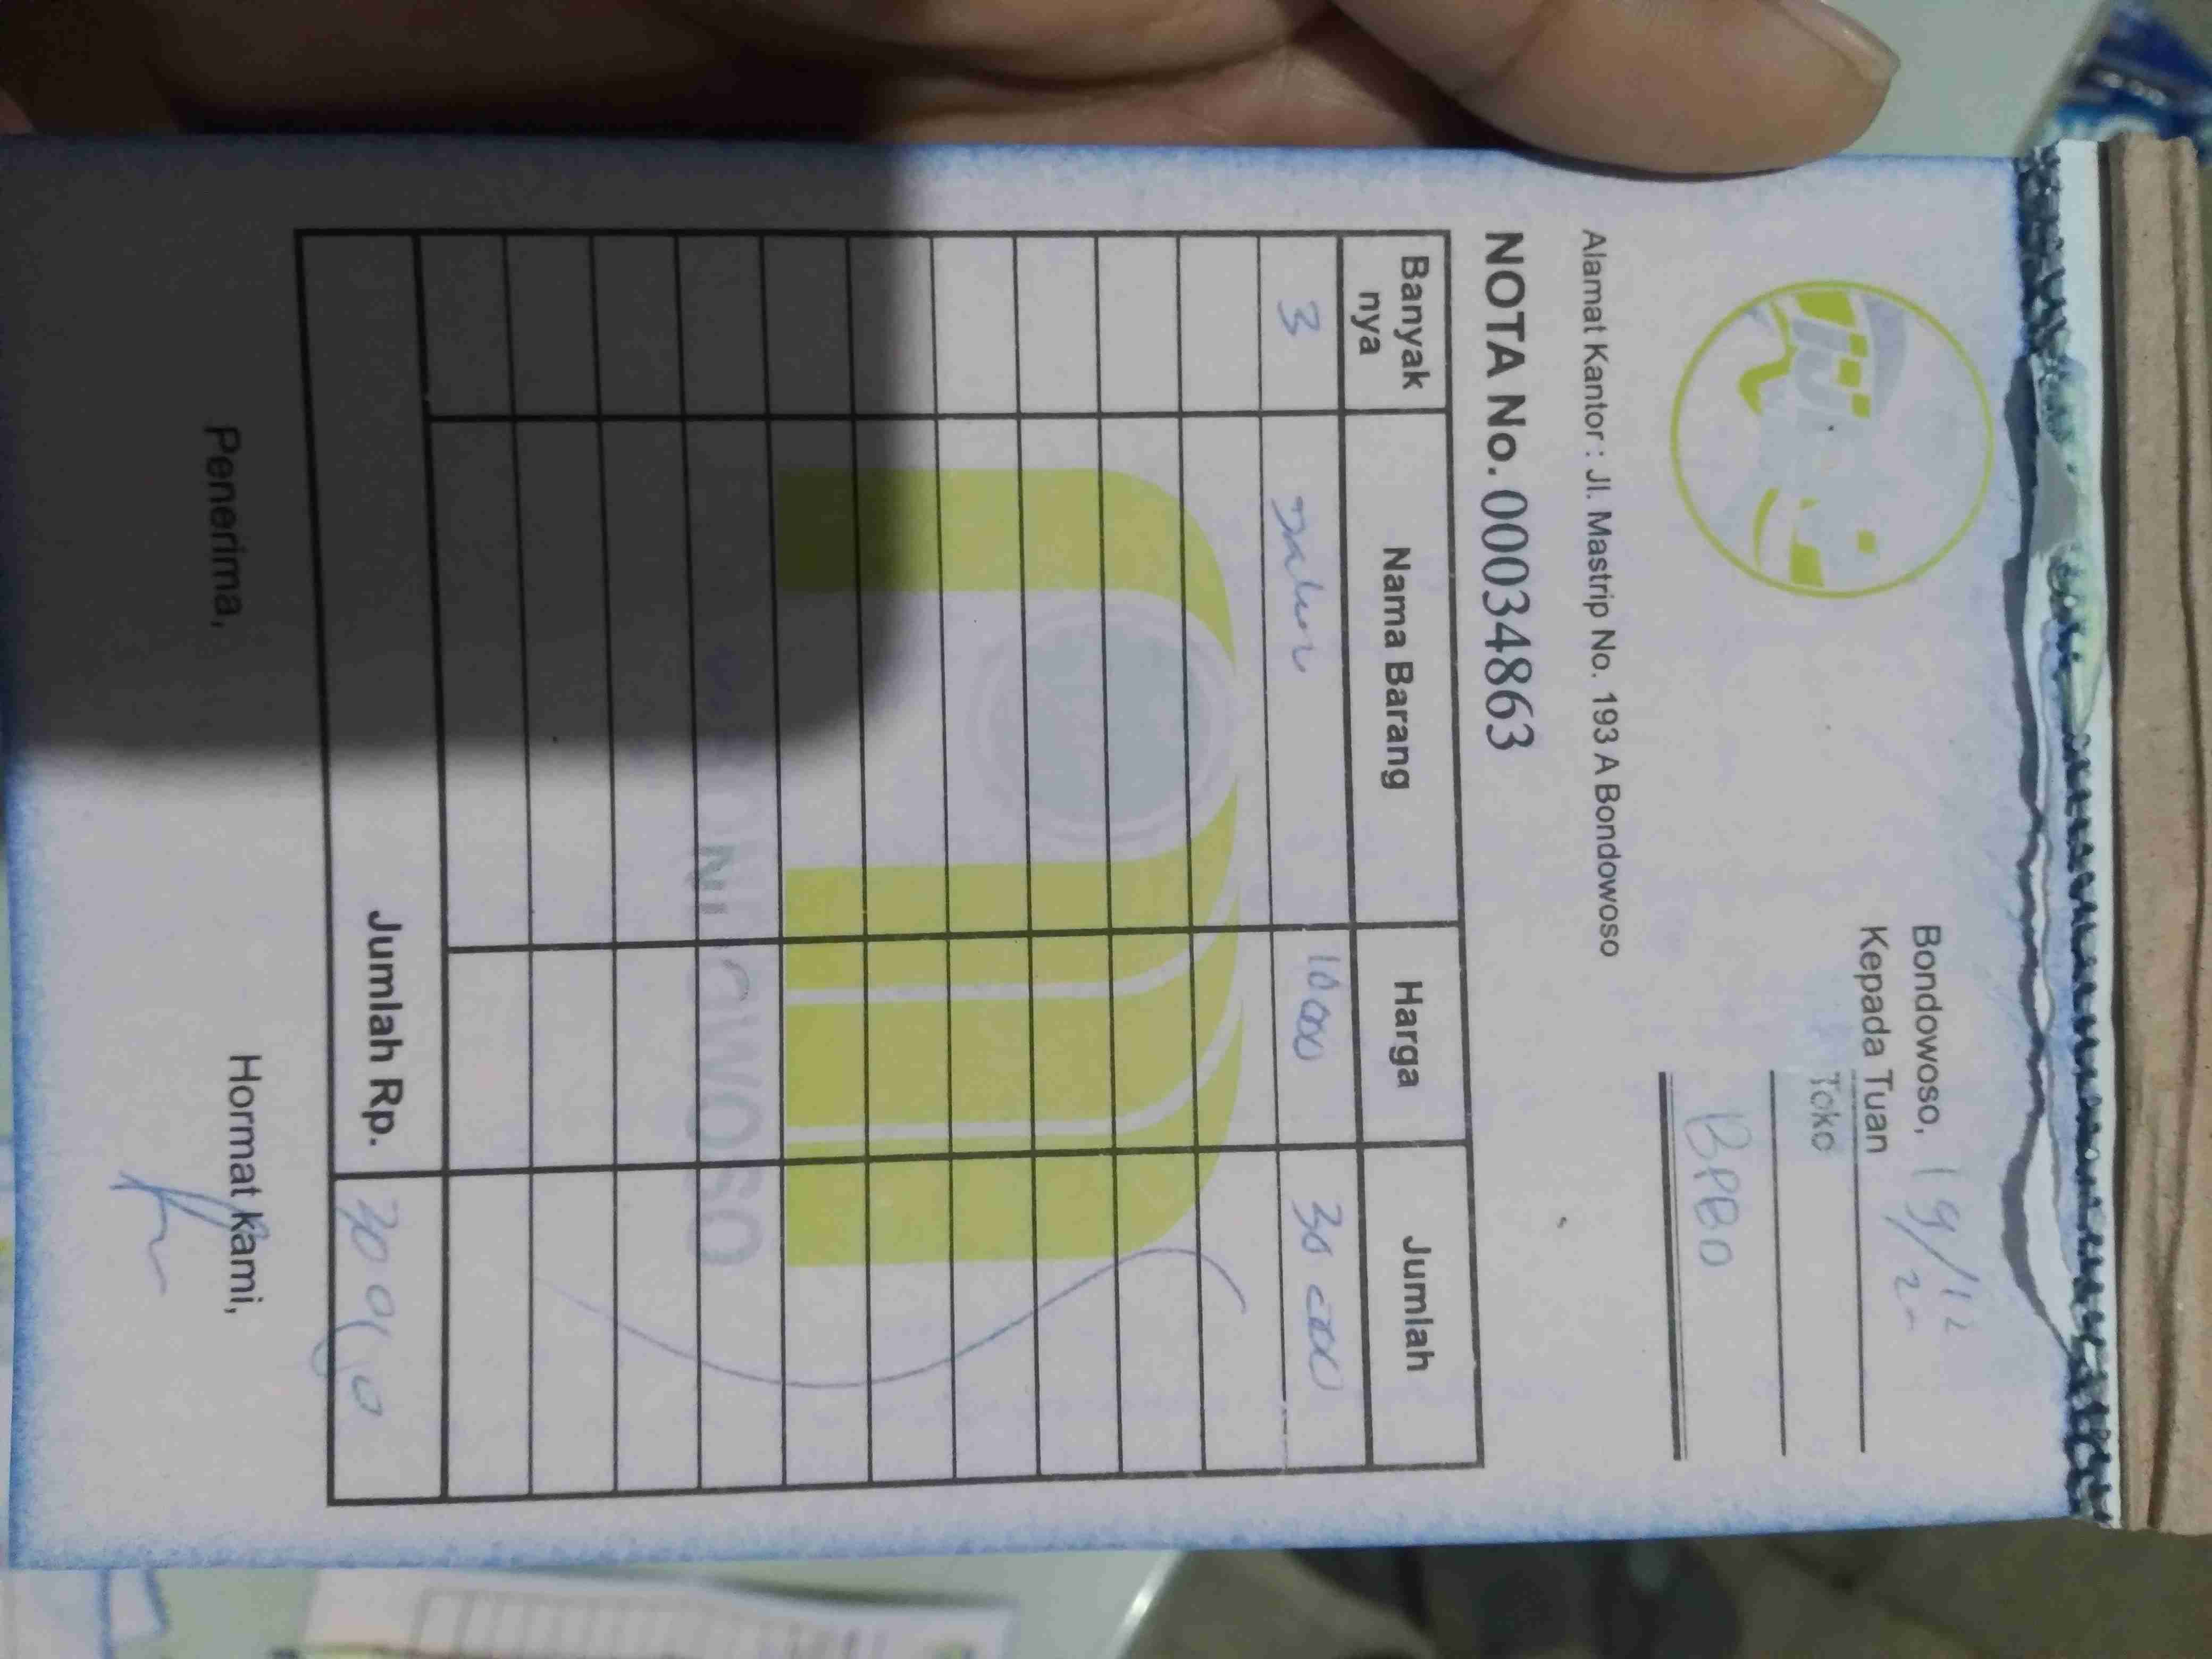 Bondowoso, 19/12
Kepada Tuan
Toko
BPBD
Alamat Kantor : Jl. Mastrip No. 193 A Bondowoso
NOTA No. 00034863
Banyak nya Nama Barang Harga Jumlah
3 10000 30 000
BONDOWOSO
Jumlah Rp. 30 000
Penerima, Hormat kami,